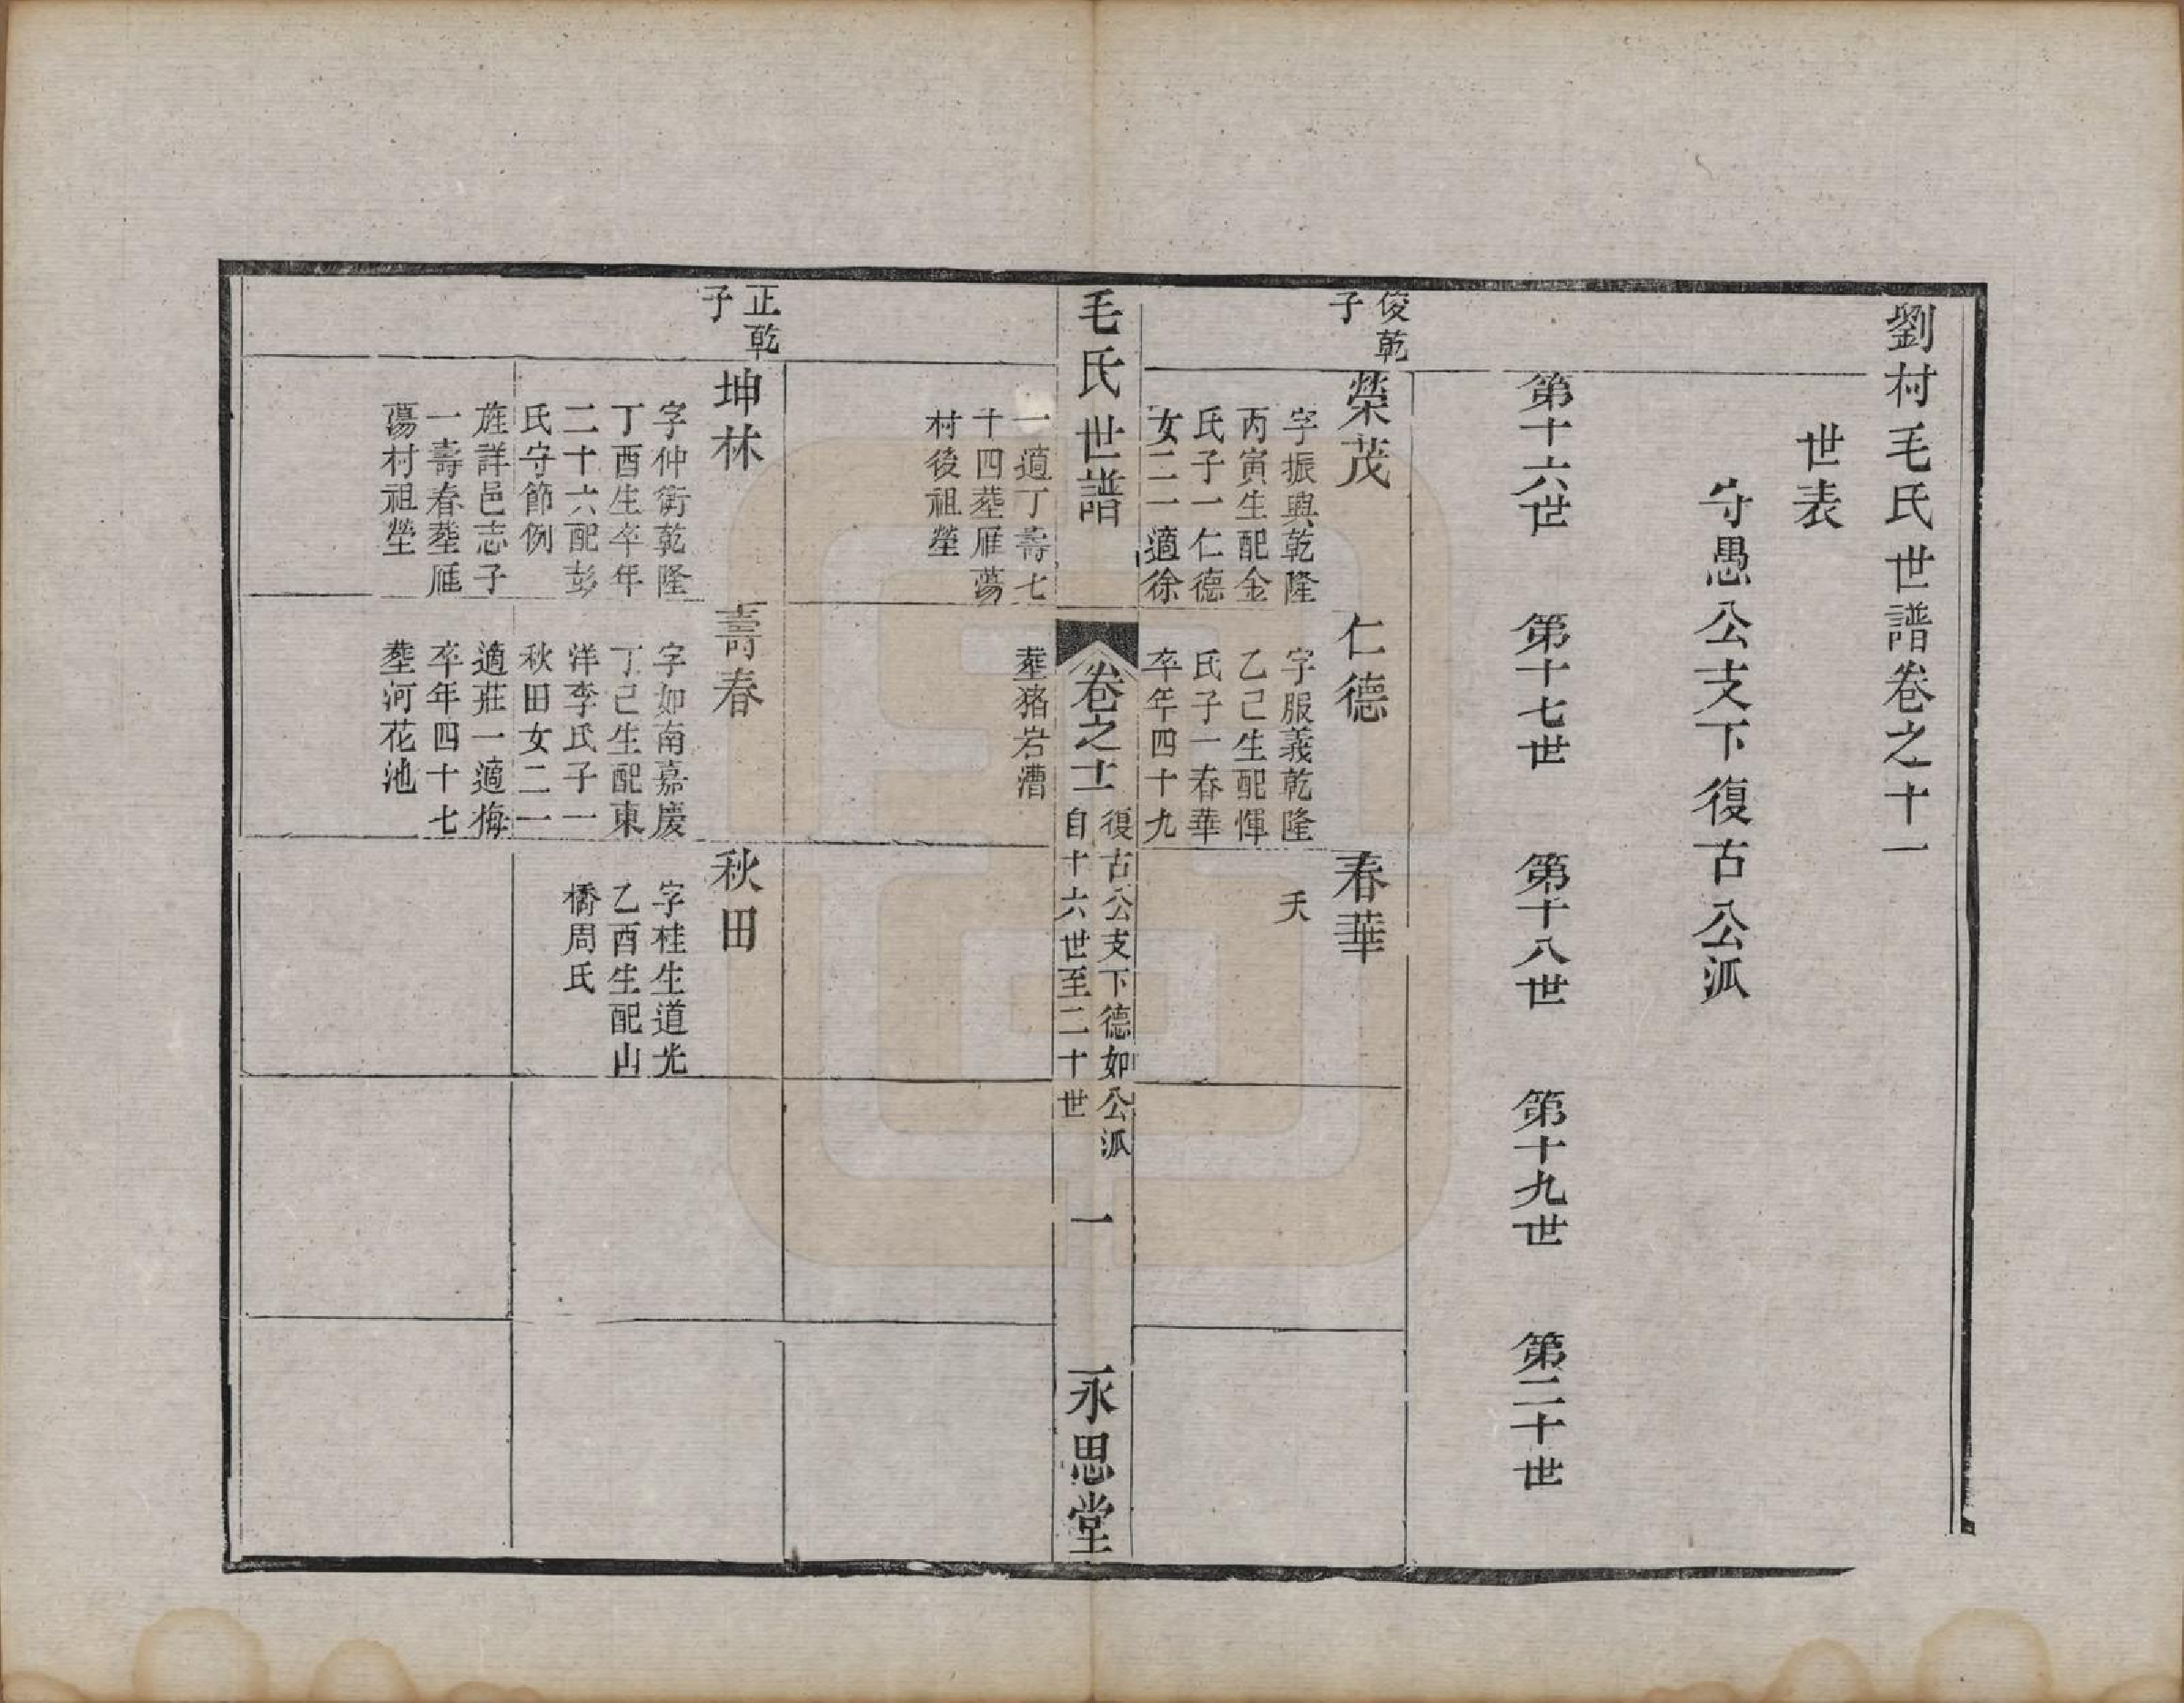 劉村毛氏世譜卷之十一
世表
守愚公支下復古公派
第十六世
第十七世
第十八世
第十九世
第二十世
俊乾
子
榮茂
字振興乾隆
丙寅生配金
氏子一仁德
女二一適徐
仁德
字服義乾隆
乙己生配惲
氏子一春華
卒年四十九
春華
夭
毛氏世譜
卷之十一
復古公支下德如公派
自十六世至二十世
一
永思堂
一適丁壽七
十四塟厓蕩
村後祖塋
塟猪岩漕
正乾
子
坤林
字仲衡乾隆
丁酉生卒年
二十六配彭
氏守節例
旌詳邑志子
一壽春塟厓
蕩村祖塋
壽春
字如南嘉慶
丁己生配東
洋李氏子一
秋田女二一
適莊一適梅
卒年四十七
塟河花池
秋田
字桂生道光
乙酉生配山
橋周氏